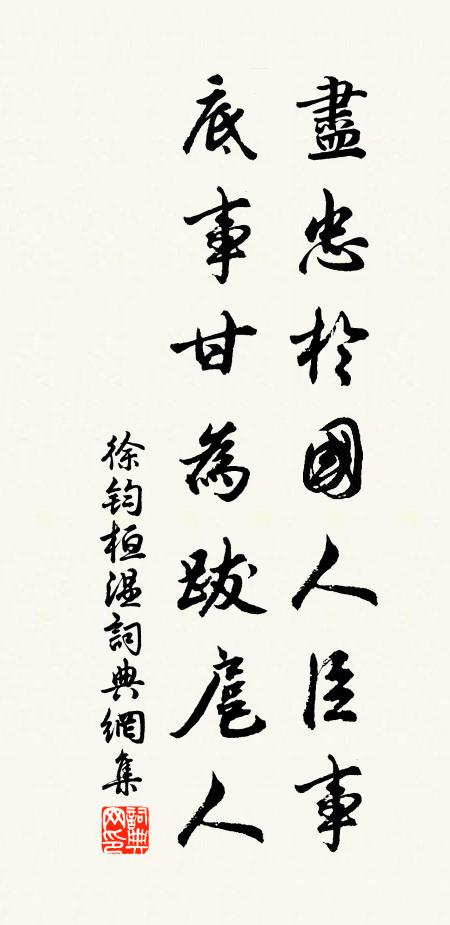 盡忠於國人臣事
底事甘為跋扈人
徐鈞桓溫詞典網集
詞典網印